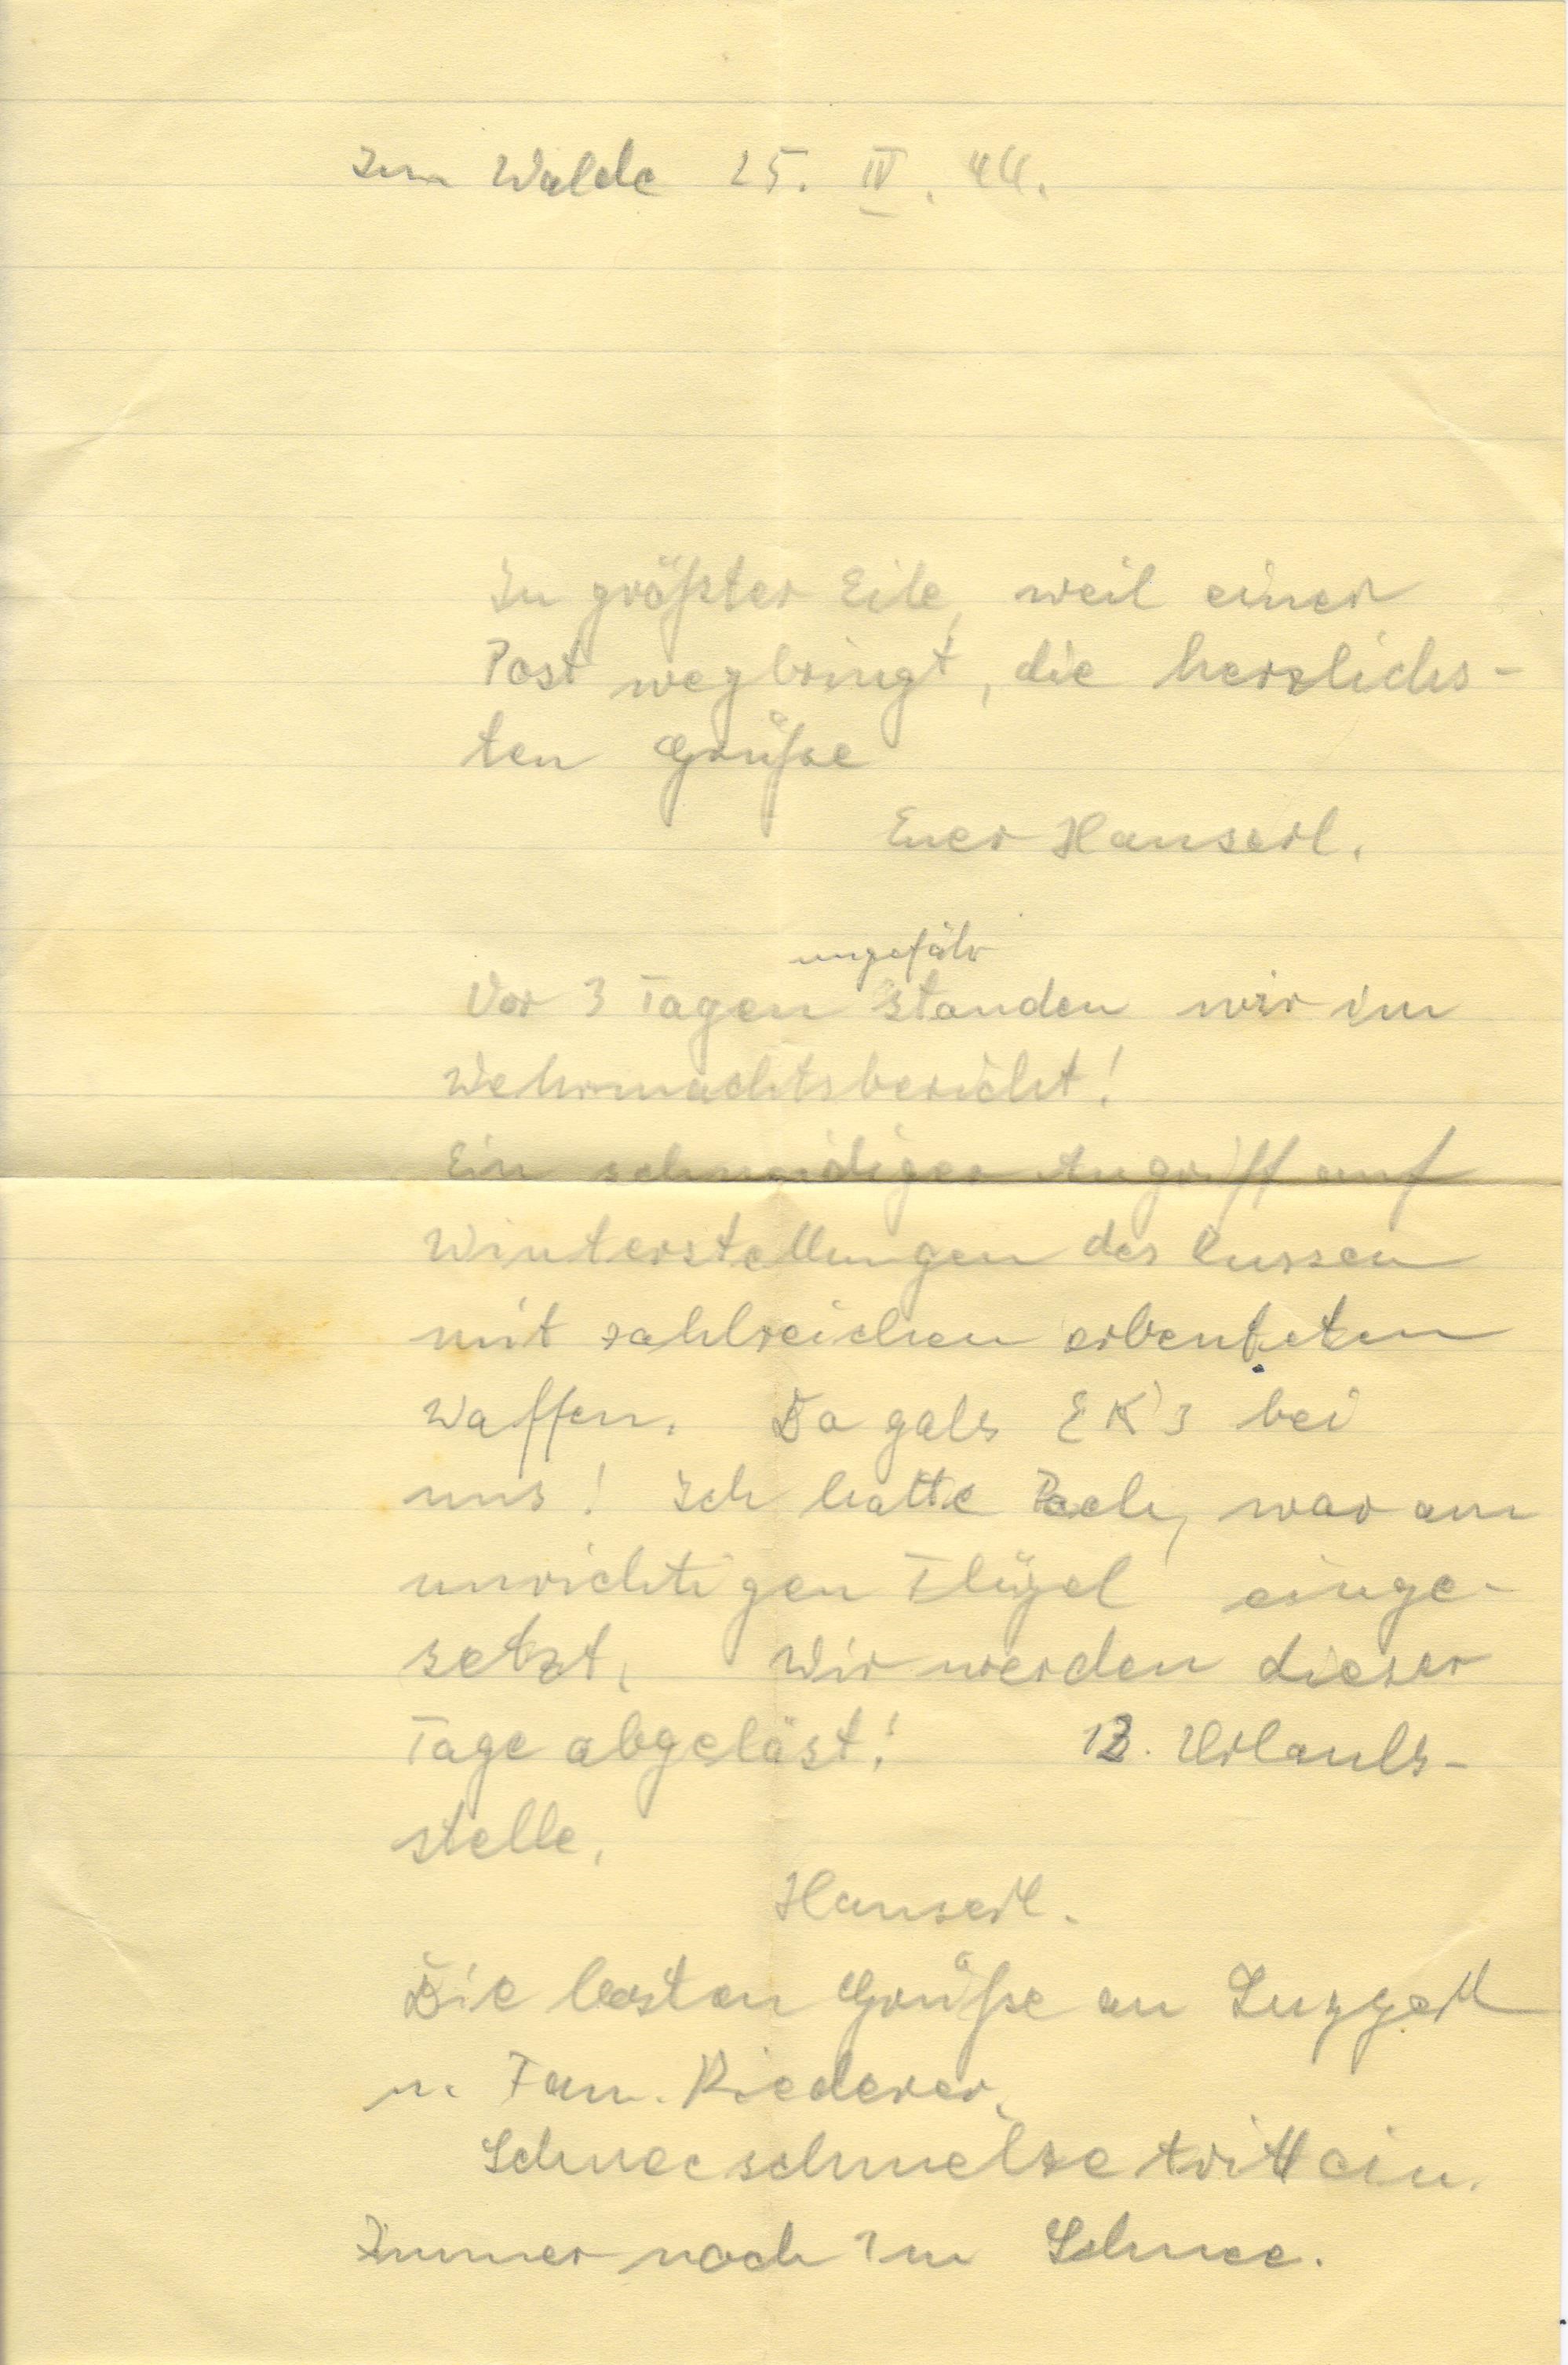 Im Walde 25. IV. 44.
In größter Eile, weil einer
Post wegbringt, die herzlichs-
ten Grüße
Euer Hanserl.
ungefähr
Vor 3 Tagen standen wir im
Wehrmachtsbericht!
Ein schneidiger Angriff auf
Winterstellungen des Russen
mit zahlreichen erbeuteten
Waffen. Da gabs EK's bei
uns! Ich hatte Pech, war am
unrichtigen Flügel einge-
setzt. Wir werden dieser
Tage abgelöst! 12. Urlaubs-
stelle.
Hanserl.
Die besten Grüße an
u. Fam. Riederer.
Schneeschmelze tritt ein.
Immer noch im Schnee.